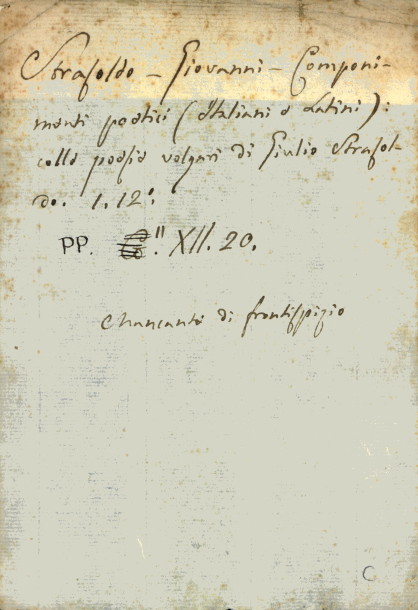 Strasoldo - Giovanni - Componi-
menti poetici (Italiani e Latini):
colle poesie volgari di Giulio Strasol-
do. 1. 12°.
PP. XII. 20.
Mancante di frontispizio
C